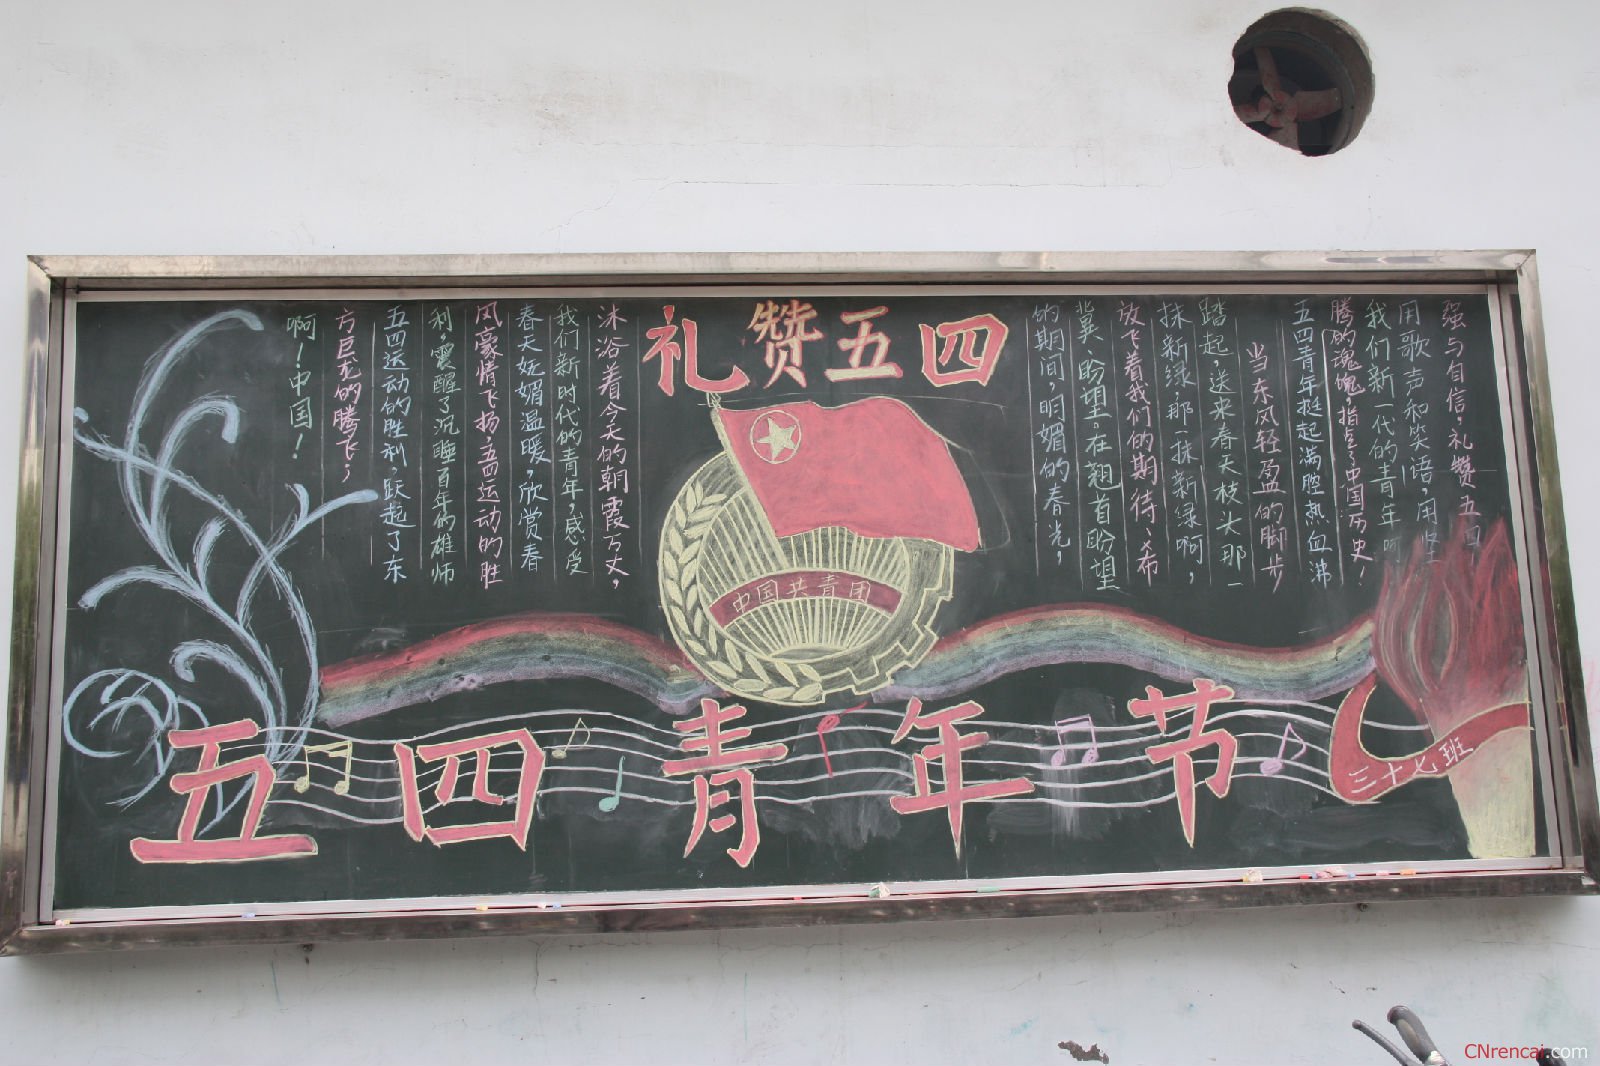 礼赞五四
强与自信，礼赞五四
用歌声和笑语，用坚
我们新一代的青年啊
腾的魂魄，指点了中国历史！
五四青年挺起满腔热血沸
当东风轻盈的脚步
踏起，送来春天枝头那一
抹新绿，那一抹新绿啊，
放飞着我们的期待、希
冀、盼望。在翘首盼望
的期间，明媚的春光，
沐浴着今天的朝霞万丈，
我们新时代的青年，感受
春天妩媚温暖，欣赏春
风豪情飞扬，五四运动的胜
利，震醒了沉睡百年的雄师
五四运动的胜利，跃起了东
方巨龙的腾飞；
啊！中国！
中国共青团
五四青年节
三十七班
CNrencai.com